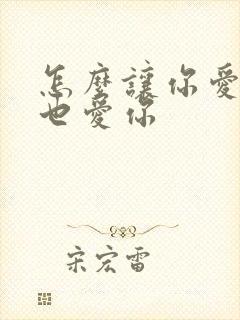 怎麼讓你愛
也愛你
宋宏雷